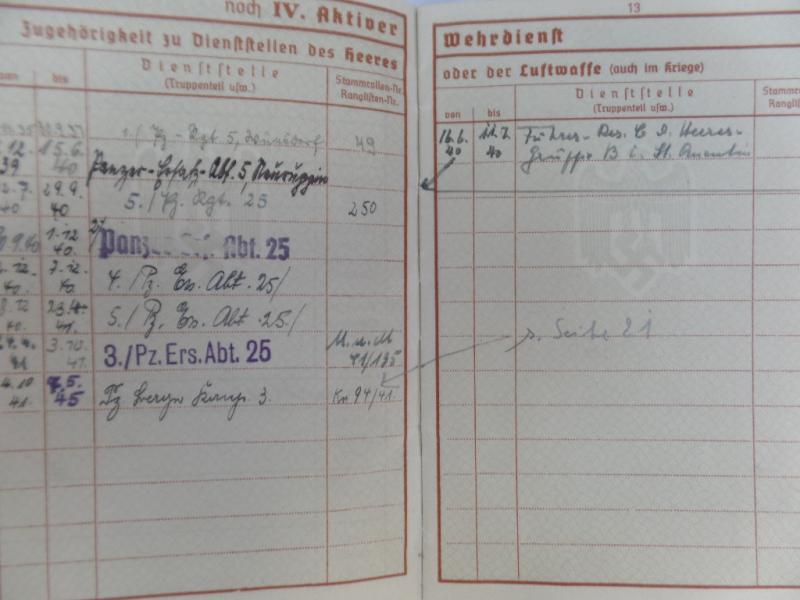 noch IV. Aktiver
Zugehörigkeit zu Dienststellen des Heeres
von bis Dienststelle
(Truppenteil usw.) Stammrollen-Nr.
Ranglisten-Nr.
1./Pz.-Rgt 5, Wünsdorf 49
12. 15.6.
39 40 Panzer-Ersatz-Abt. 5, Neuruppin
7. 29.9.
40 40 5./Pz. Rgt. 25 250
9.40 1.12
40. Abt. 25
12. 7.12
40. 40. 4./Pz. Ers. Abt. 25/
12
40. 41. 5./Pz. Ers. Abt. 25./
3.10.
41 41. 3./Pz.Ers.Abt. 25 41/195
4.10 5.
41. 45 Komp. 3. 94/41.
13
Wehrdienst
oder der Luftwaffe (auch im Kriege)
von bis Dienststelle
(Truppenteil usw.) Stammrollen-Nr.
Ranglisten-Nr.
16.6. 11.7.
40 40 Führer-Res. d. Heeres-
Gruppe B i. St. Quentin
s. Seite 21